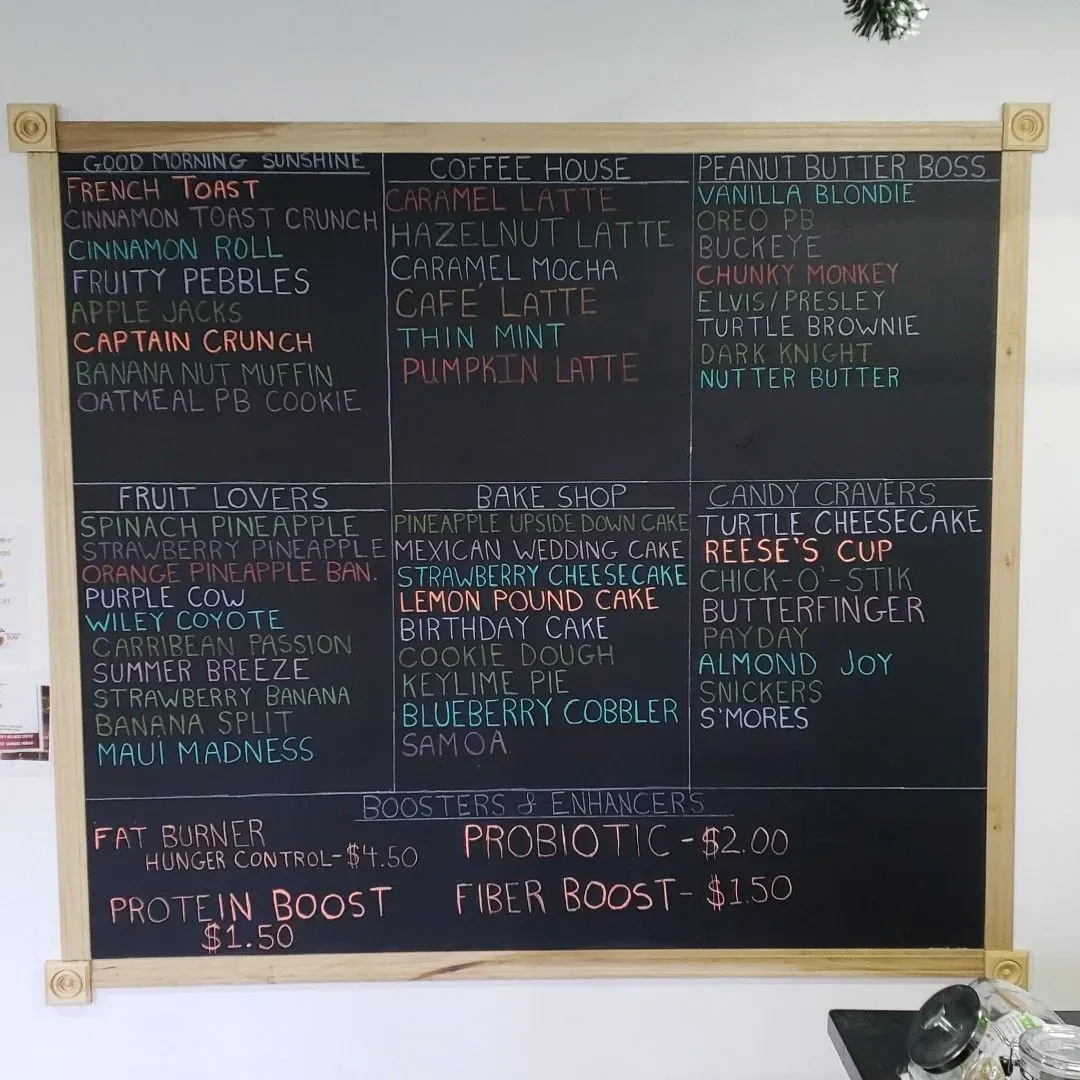 GOOD MORNING SUNSHINE
FRENCH TOAST
CINNAMON TOAST CRUNCH
CINNAMON ROLL
FRUITY PEBBLES
APPLE JACKS
CAPTAIN CRUNCH
BANANA NUT MUFFIN
OATMEAL PB COOKIE
COFFEE HOUSE
CARAMEL LATTE
HAZELNUT LATTE
CARAMEL MOCHA
CAFÉ LATTE
THIN MINT
PUMPKIN LATTE
PEANUT BUTTER BOSS
VANILLA BLONDIE
OREO PB
BUCKEYE
CHUNKY MONKEY
ELVIS/PRESLEY
TURTLE BROWNIE
DARK KNIGHT
NUTTER BUTTER
FRUIT LOVERS
SPINACH PINEAPPLE
STRAWBERRY PINEAPPLE
ORANGE PINEAPPLE BAN.
PURPLE COW
WILEY COYOTE
CARRIBEAN PASSION
SUMMER BREEZE
STRAWBERRY BANANA
BANANA SPLIT
MAUI MADNESS
BAKE SHOP
PINEAPPLE UPSIDE DOWN CAKE
MEXICAN WEDDING CAKE
STRAWBERRY CHEESECAKE
LEMON POUND CAKE
BIRTHDAY CAKE
COOKIE DOUGH
KEYLIME PIE
BLUEBERRY COBBLER
SAMOA
CANDY CRAVERS
TURTLE CHEESECAKE
REESE'S CUP
CHICK-O'-STIK
BUTTERFINGER
PAYDAY
ALMOND JOY
SNICKERS
S'MORES
BOOSTERS & ENHANCERS
FAT BURNER
HUNGER CONTROL-$4.50
PROTEIN BOOST
$1.50
PROBIOTIC-$2.00
FIBER BOOST-$1.50